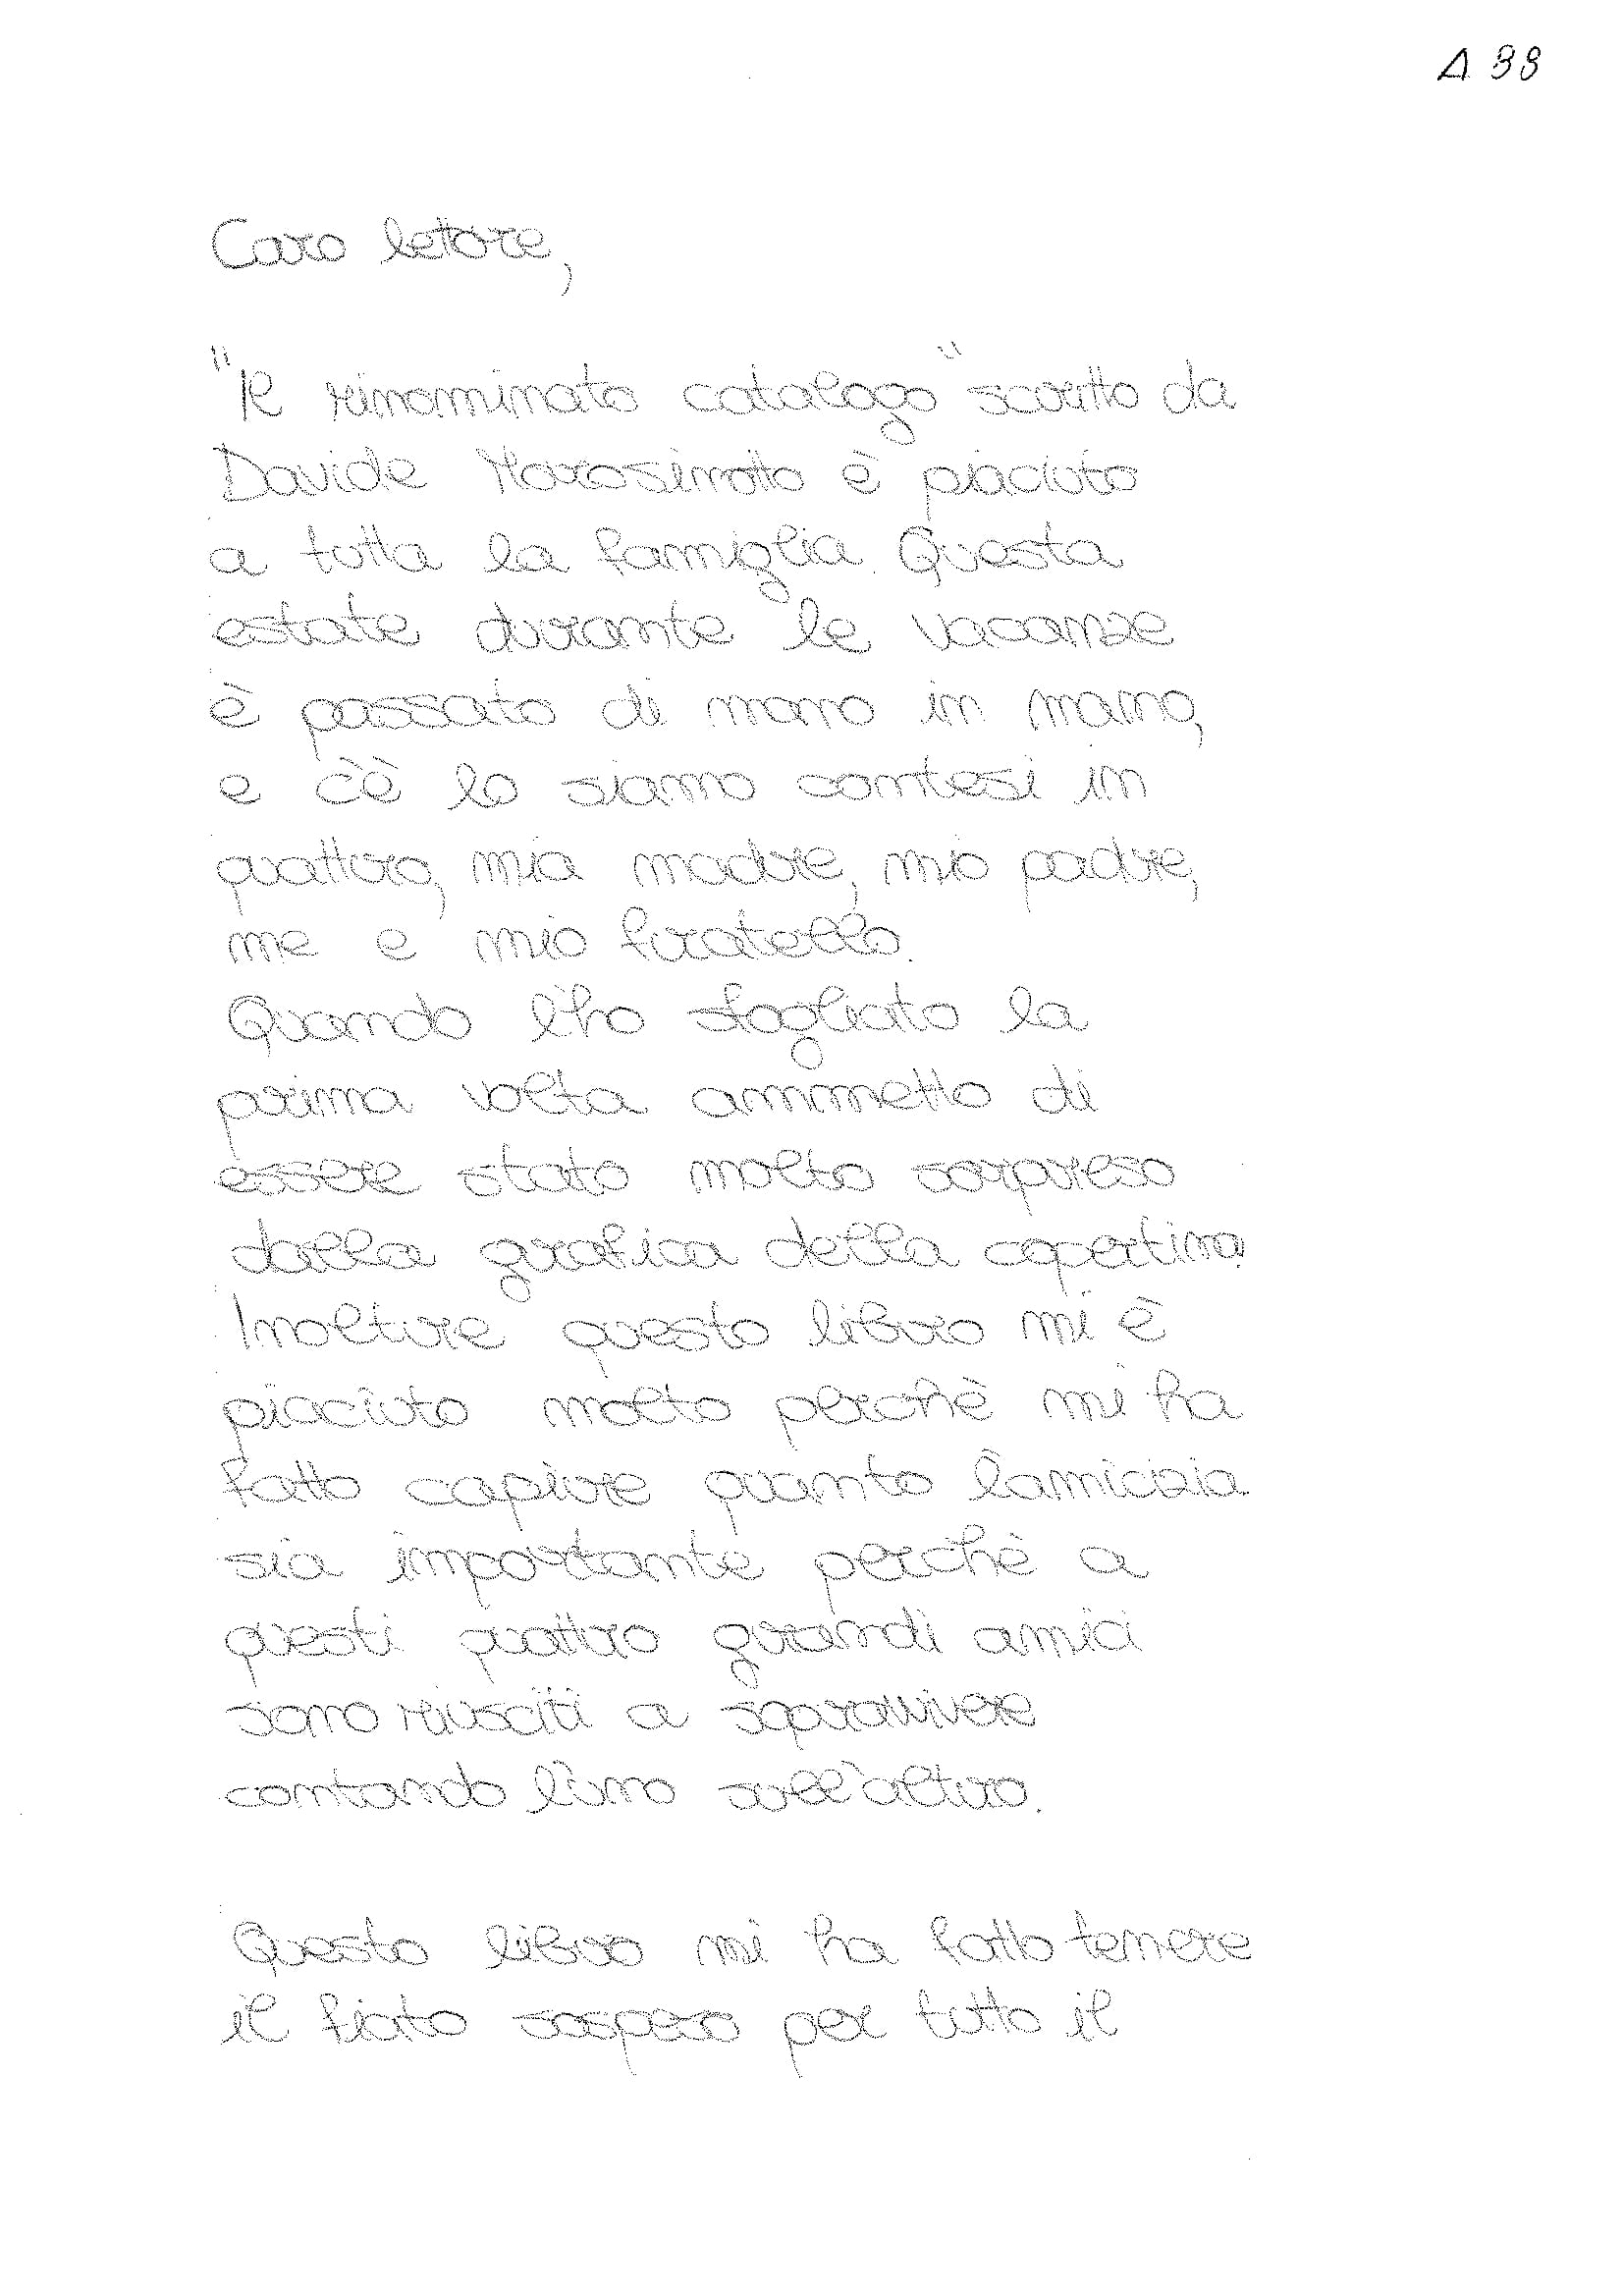 A 38
Caro lettore,
"Il rinominato catalogo" scritto da
Davide Morosinotto è piaciuto
a tutta la famiglia. Questa
estate durante le vacanze
è passato di mano in mano,
e c'è lo siamo contesi in
quattro, mia madre, mio padre,
me e mio fratello.
Quando l'ho sfogliato la
prima volta ammetto di
essere stato molto sorpreso
dalla grafica della copertina.
Inoltre questo libro mi è
piaciuto molto perchè mi ha
fatto capire quanto l'amicizia
sia importante perchè a
questi quattro grandi amici
sono riusciti a sopravvivere
contando l'uno sull'altro.
Questo libro mi ha fatto tenere
il fiato sospeso per tutto il